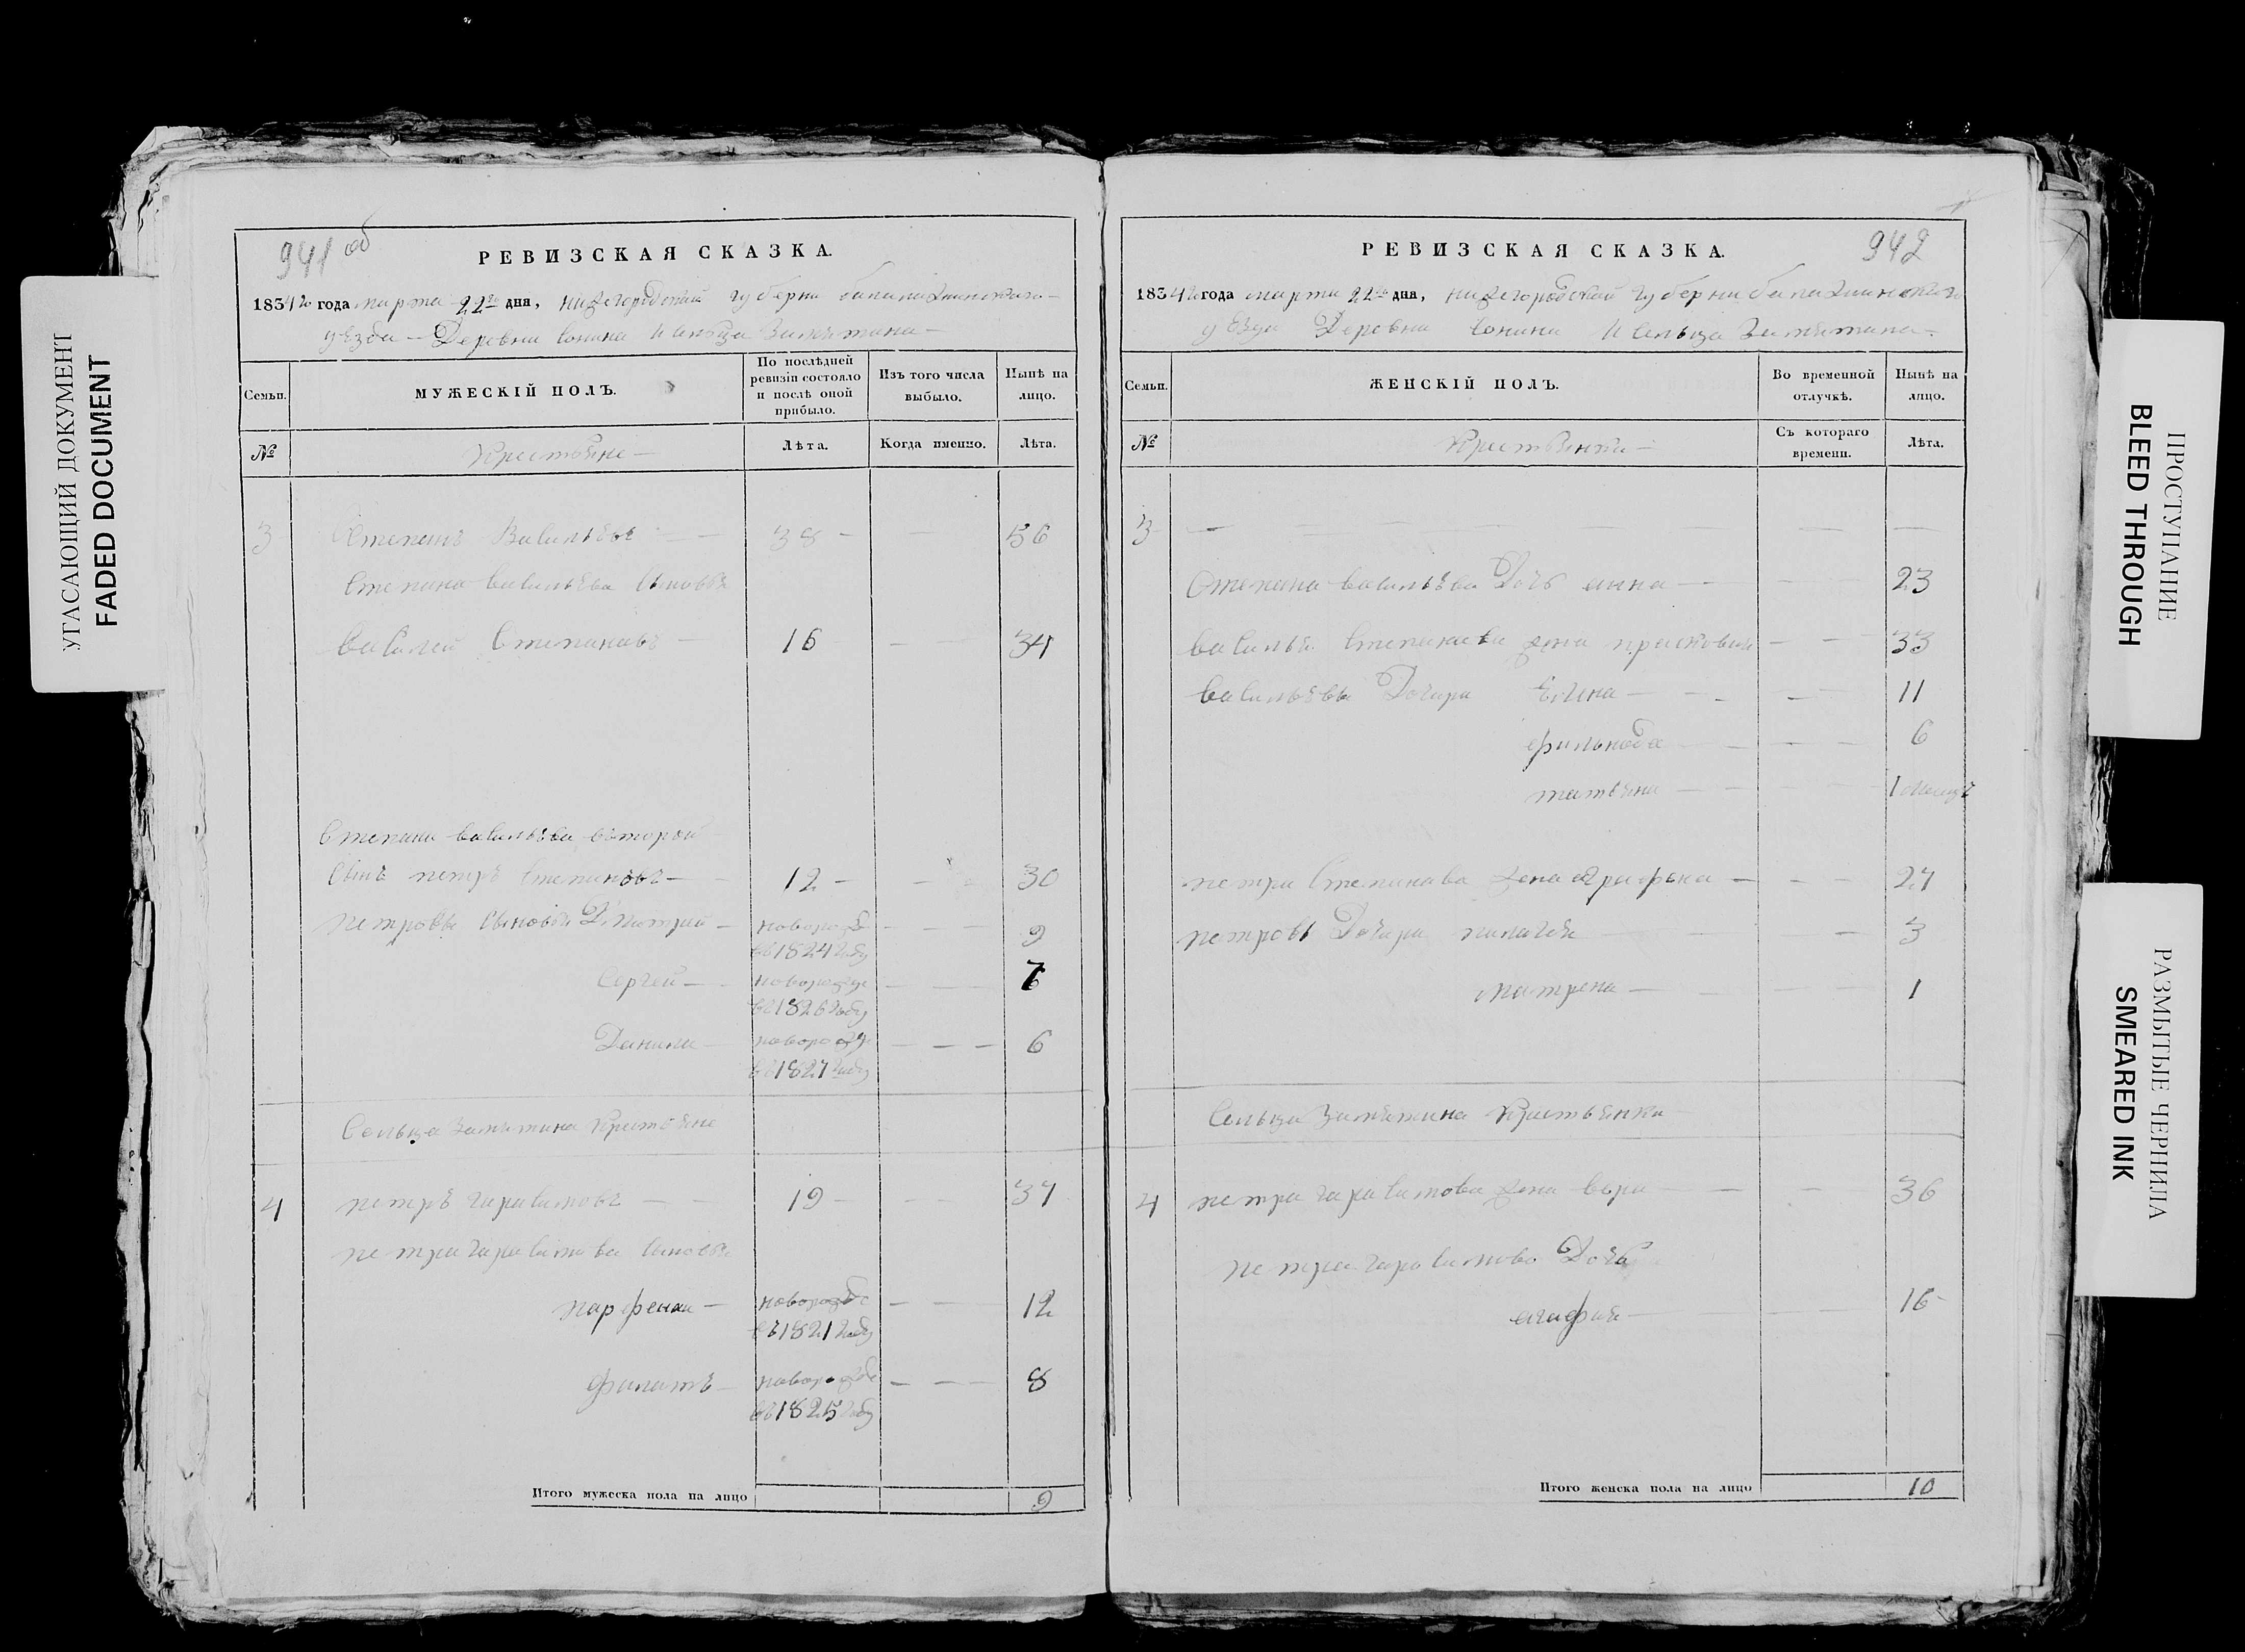 УГАСАЮЩИЙ ДОКУМЕНТ
FADED DOCUMENT
941 об
РЕВИЗСКАЯ СКАЗКА.
1834го года марта 22го дня, нижегородской губерни балахнинскаго
уѣзда Деревни Сонина И Сельца Замятина
Семьи.
МУЖЕСКІЙ ПОЛЪ.
По послѣдней ревизіи состояло и послѣ оной прибыло.
Изъ того числа выбыло.
Нынѣ на лицо.
№
Крестьяне
Лѣта.
Когда именно.
Лѣта.
3 Степанъ Васильевъ 38 56
Степана васильева Сыновья
василей Степановъ 16 34
Степана васильева второй
Сынъ петръ Степановъ 12 30
петровы Сыновья Дмитрей новорожде 9
въ 1824 году
Сергей новорожде 7
въ 1826 году
Данила новорожде 6
въ 1827 году
Сельца Замятина Крестьяне
4 петръ герасимовъ 19 37
петра герасимова Сыновья
парфенъ новорожде 12
въ 1821 году
филатъ новорожде 8
въ 1825 году
Итого мужеска пола на лицо 9
942
РЕВИЗСКАЯ СКАЗКА.
1834го года марта 22го дня, нижегородской губерни балахнинскаго
уѣзда Деревни Сонина И Сельца Замятина
Семьи.
ЖЕНСКІЙ ПОЛЪ.
Во временной отлучкѣ.
Нынѣ на лицо.
№
Крестьянки
Съ котораго времени.
Лѣта.
3
Степана васильева Дочь анна 23
василья Степанава жена прасковья 33
васильевы Дочери 11
6
татьяна 1 месецъ
петра Степанава жена аграфена 27
петровы Дочери пилагея 3
матрена 1
Сельца Замятина Крестьянки
4 петра герасимова жена вера 36
петра герасимова Дочь
агафия 16
Итого женска пола на лицо 10
ПРОСТУПАНИЕ
BLEED THROUGH
РАЗМЫТЫЕ ЧЕРНИЛА
SMEARED INK